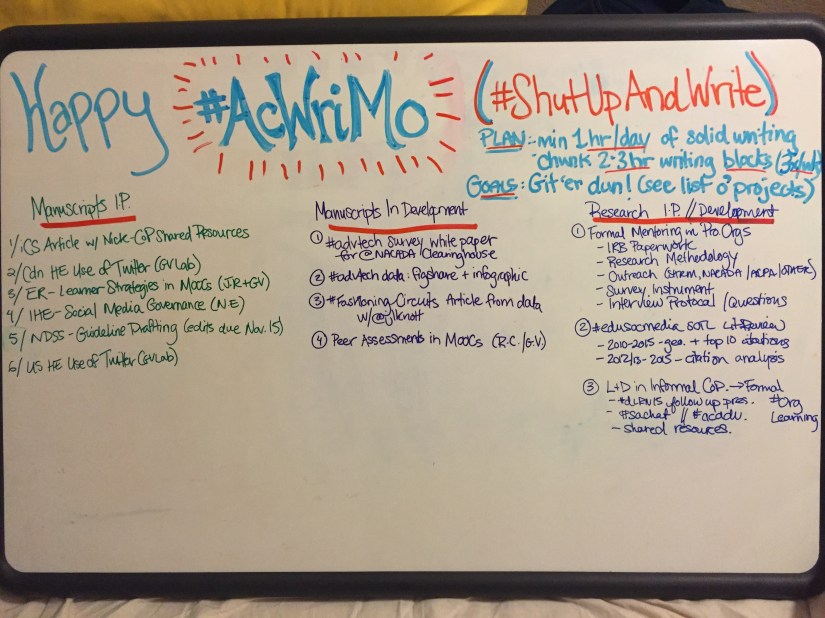 Happy #AcWriMo (#ShutUpAndWrite)
PLAN: min 1hr/day of solid writing
chunk 2-3hr writing blocks
GOALS: Git'er dun! (see list o' projects)
Manuscripts I.P.
1/ iCS Article w/ Nick-CoP Shared Resources
2/ Cdn HE Use of Twitter (GVLab)
3/ ER - Learner Strategies in MOOCs (JR+GV)
4/ IHE - Social Media Governance (NE)
5/ NDSS - Guideline Drafting (edits due Nov. 15)
6/ US HE Use of Twitter (GVLab)
Manuscripts In Development
① #advtech survey white paper
for @NACADA Clearinghouse
② #advtech data: figshare + infographic
③ #FashioningCircuits Article from data
w/@jlknott
④ Peer Assessments in MOOCs (R.C./G.V.)
Research I.P. // Development
① Formal Mentoring in Pro Orgs
- IRB Paperwork
- Research Methodology
- Outreach (SHRM, NACADA/ACPA/OTHERS)
- Survey Instrument
- Interview Protocol/Questions
② #edusocmedia SOTL Lit Review
- 2010-2015 - gen. + top 10 citations
- 2012/13-2015 - citation analysis
③ L+D in Informal CoP → Formal
- #dLRN15 follow up pres. #Org
- #sachat // #acadv. Learning
- shared resources.